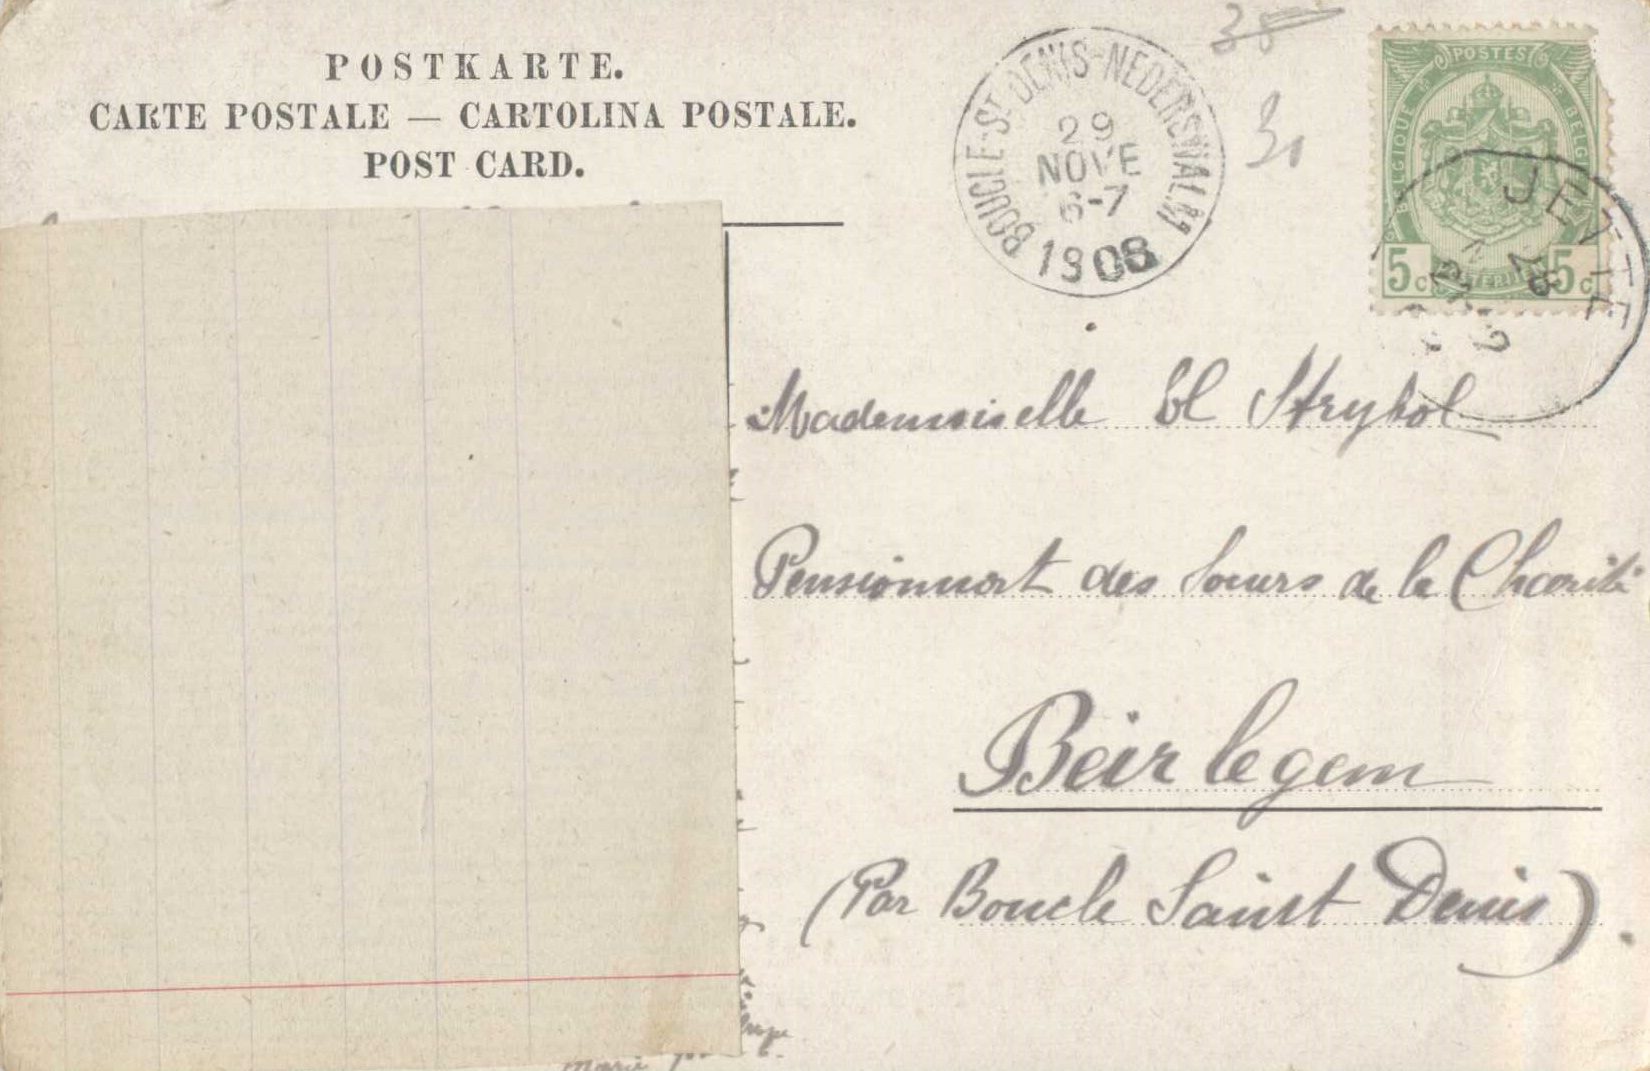 POSTKARTE.
CARTE POSTALE — CARTOLINA POSTALE.
POST CARD.
BOUCLE-ST-DENIS-NEDERSWALM
29
NOVE
6-7
1908
30
POSTES
BELGIQUE BELGIE
5c 5c
JETTE
Mademoiselle Bl Strybol
Pensionnat des Soeurs de la Charité
Beirlegem
(Par Boucle Saint Denis).
Marie